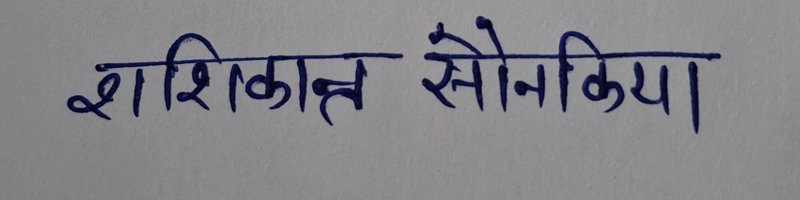 शशिकान्त सौनकिया